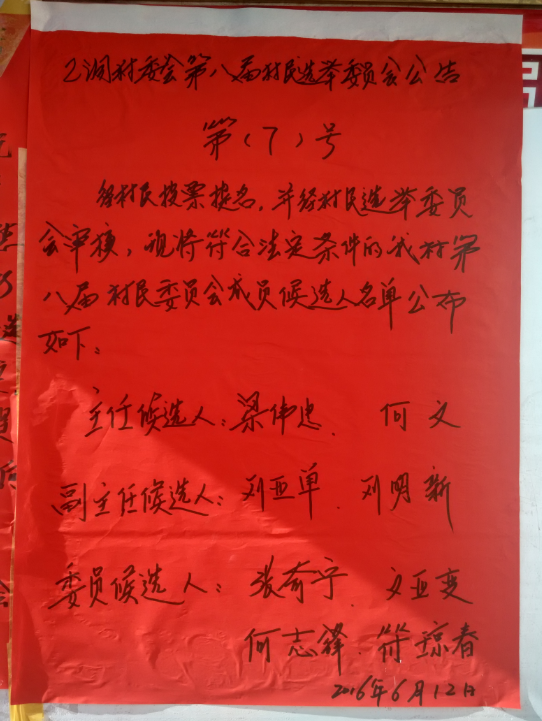 村委会第八届村民选举委员会公告
第(7)号
经村民投票提名,并经村民选举委员
会审核,现将符合法定条件的我村第
八届村民委员会成员候选人名单公布
如下:
主任候选人:梁伟忠、何文
副主任候选人:刘亚单、刘明新
委员候选人:张奇宁、文亚变
何志锋、符琼春
2016年6月12日